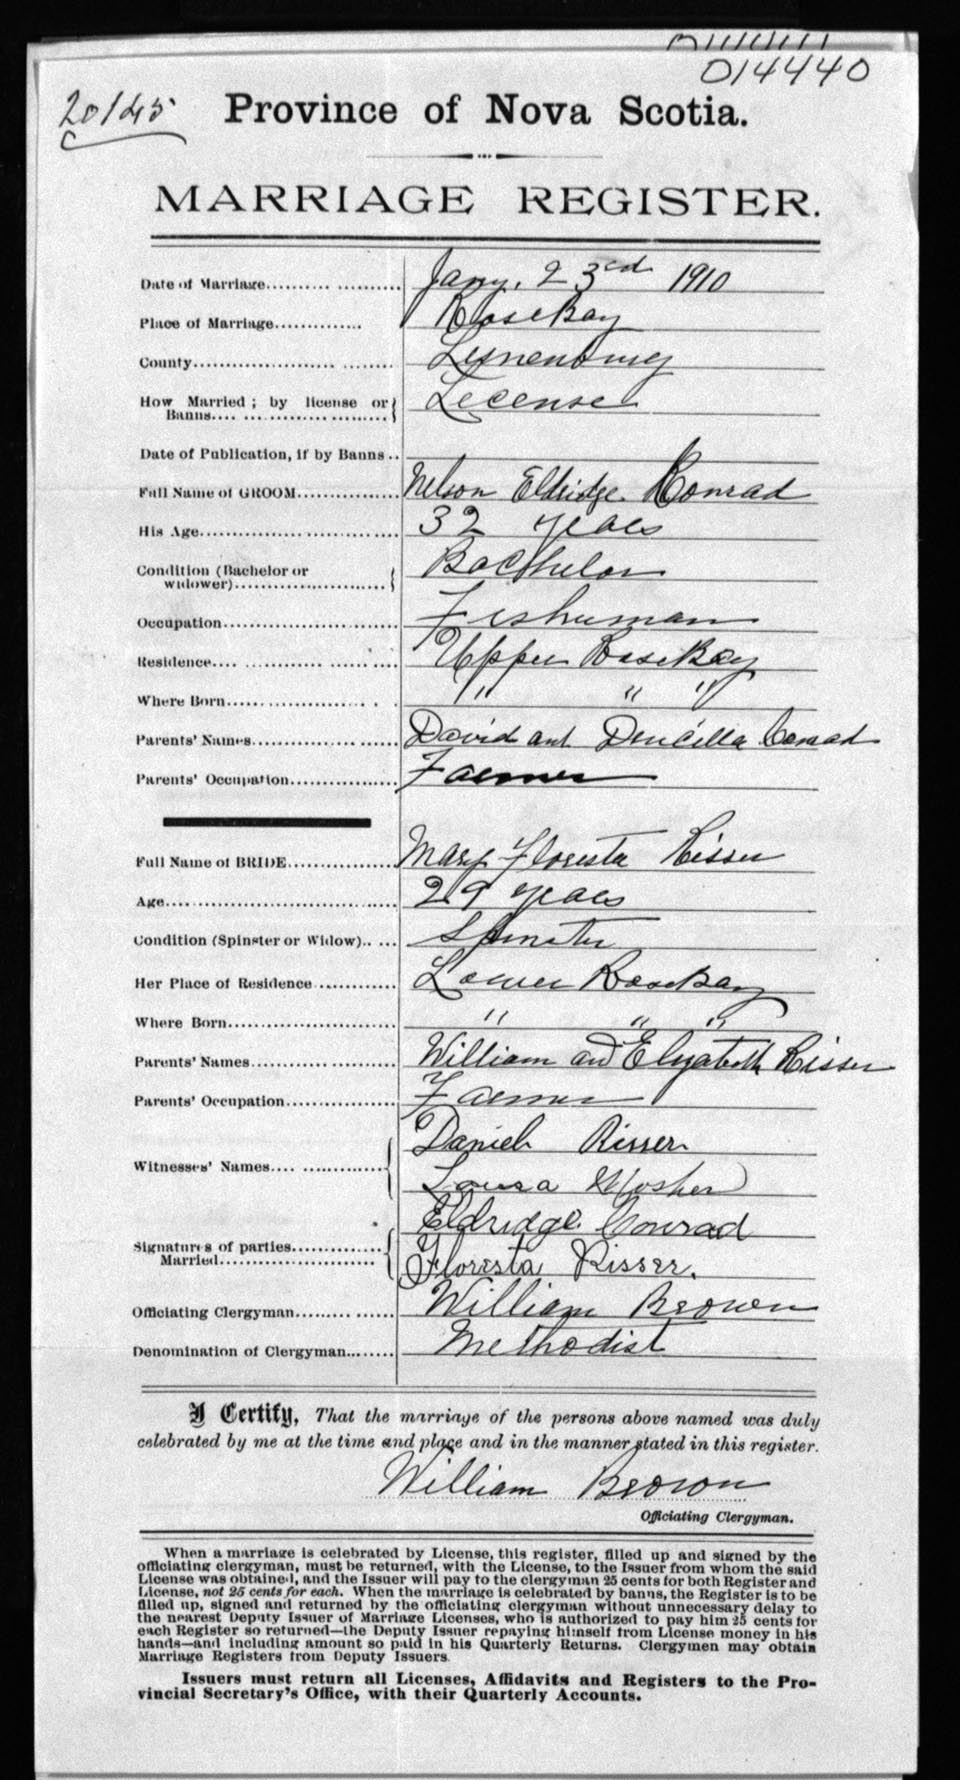 014440
20145
Province of Nova Scotia.
MARRIAGE REGISTER.
Date of Marriage Jany. 23rd 1910
Place of Marriage Rose Bay
County Lunenburg
How Married ; by license or
Banns License
Date of Publication, if by Banns
Full Name of GROOM Nelson Eldridge Conrad
His Age 32 years
Condition (Bachelor or
widower) Bachelor
Occupation Fisherman
Residence Upper Rose Bay
Where Born " " "
Parents' Names David and Drucilla Conrad
Parents' Occupation Farmer
Full Name of BRIDE Mary Floresta Risser
Age 29 years
Condition (Spinster or Widow) Spinster
Her Place of Residence Lower Rose Bay
Where Born " " "
Parents' Names William and Elizabeth Risser
Parents' Occupation Farmer
Daniel Risser
Witnesses' Names
Laura Mosher
Eldridge Conrad
Signatures of parties
Married Floresta Risser.
Officiating Clergyman William Brown
Denomination of Clergyman Methodist
I Certify, That the marriage of the persons above named was duly
celebrated by me at the time and place and in the manner stated in this register.
William Brown
Officiating Clergyman.
When a marriage is celebrated by License, this register, filled up and signed by the
officiating clergyman, must be returned, with the License, to the Issuer from whom the said
License was obtained, and the Issuer will pay to the clergyman 25 cents for both Register and
License, not 25 cents for each. When the marriage is celebrated by banns, the Register is to be
filled up, signed and returned by the officiating clergyman without unnecessary delay to
the nearest Deputy Issuer of Marriage Licenses, who is authorized to pay him 25 cents for
each Register so returned—the Deputy Issuer repaying himself from License money in his
hands—and including amount so paid in his Quarterly Returns. Clergymen may obtain
Marriage Registers from Deputy Issuers.
Issuers must return all Licenses, Affidavits and Registers to the Pro-
vincial Secretary's Office, with their Quarterly Accounts.